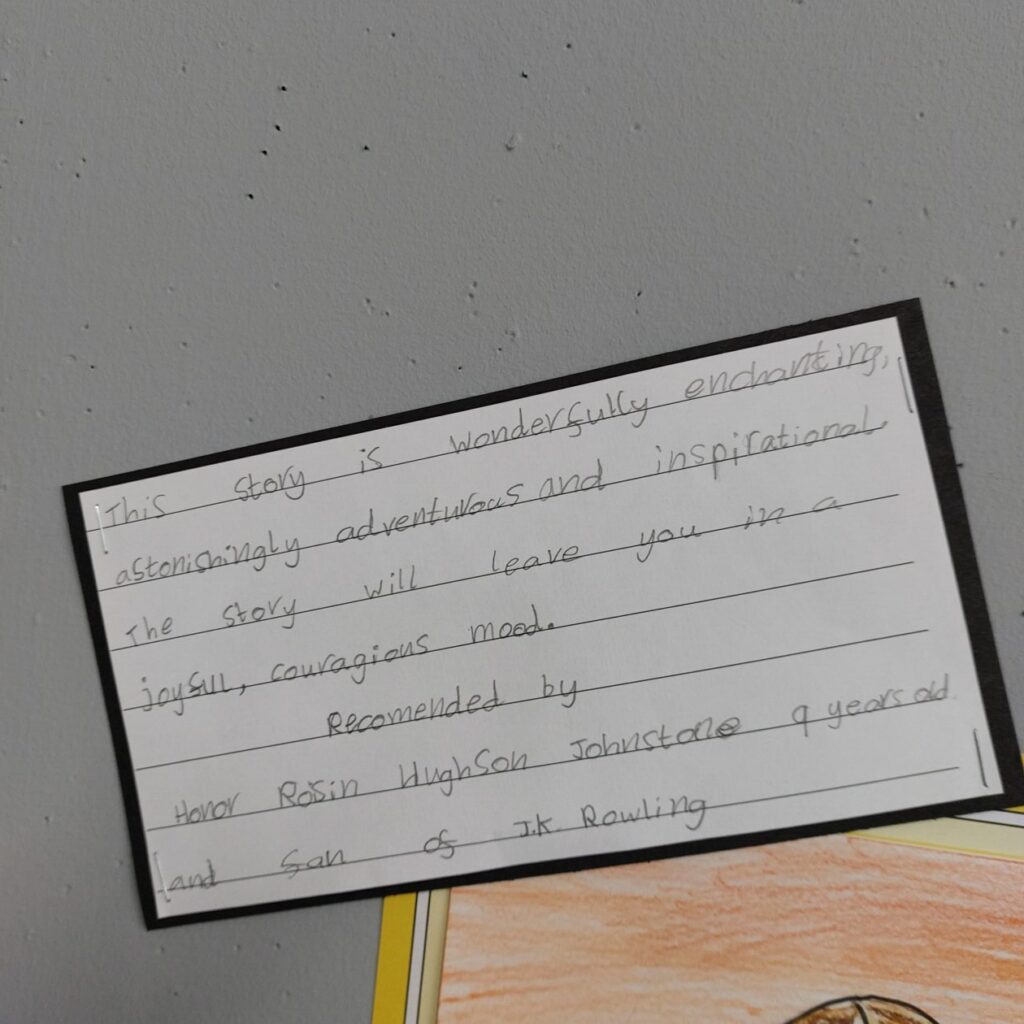 This story is wonderfully enchanting,
astonishingly adventurous and inspirational.
The story will leave you in a
joyful, couragious mood.
Recomended by
Honor Roisin Hughson Johnstone 9 years old.
and fan of J.K. Rowling